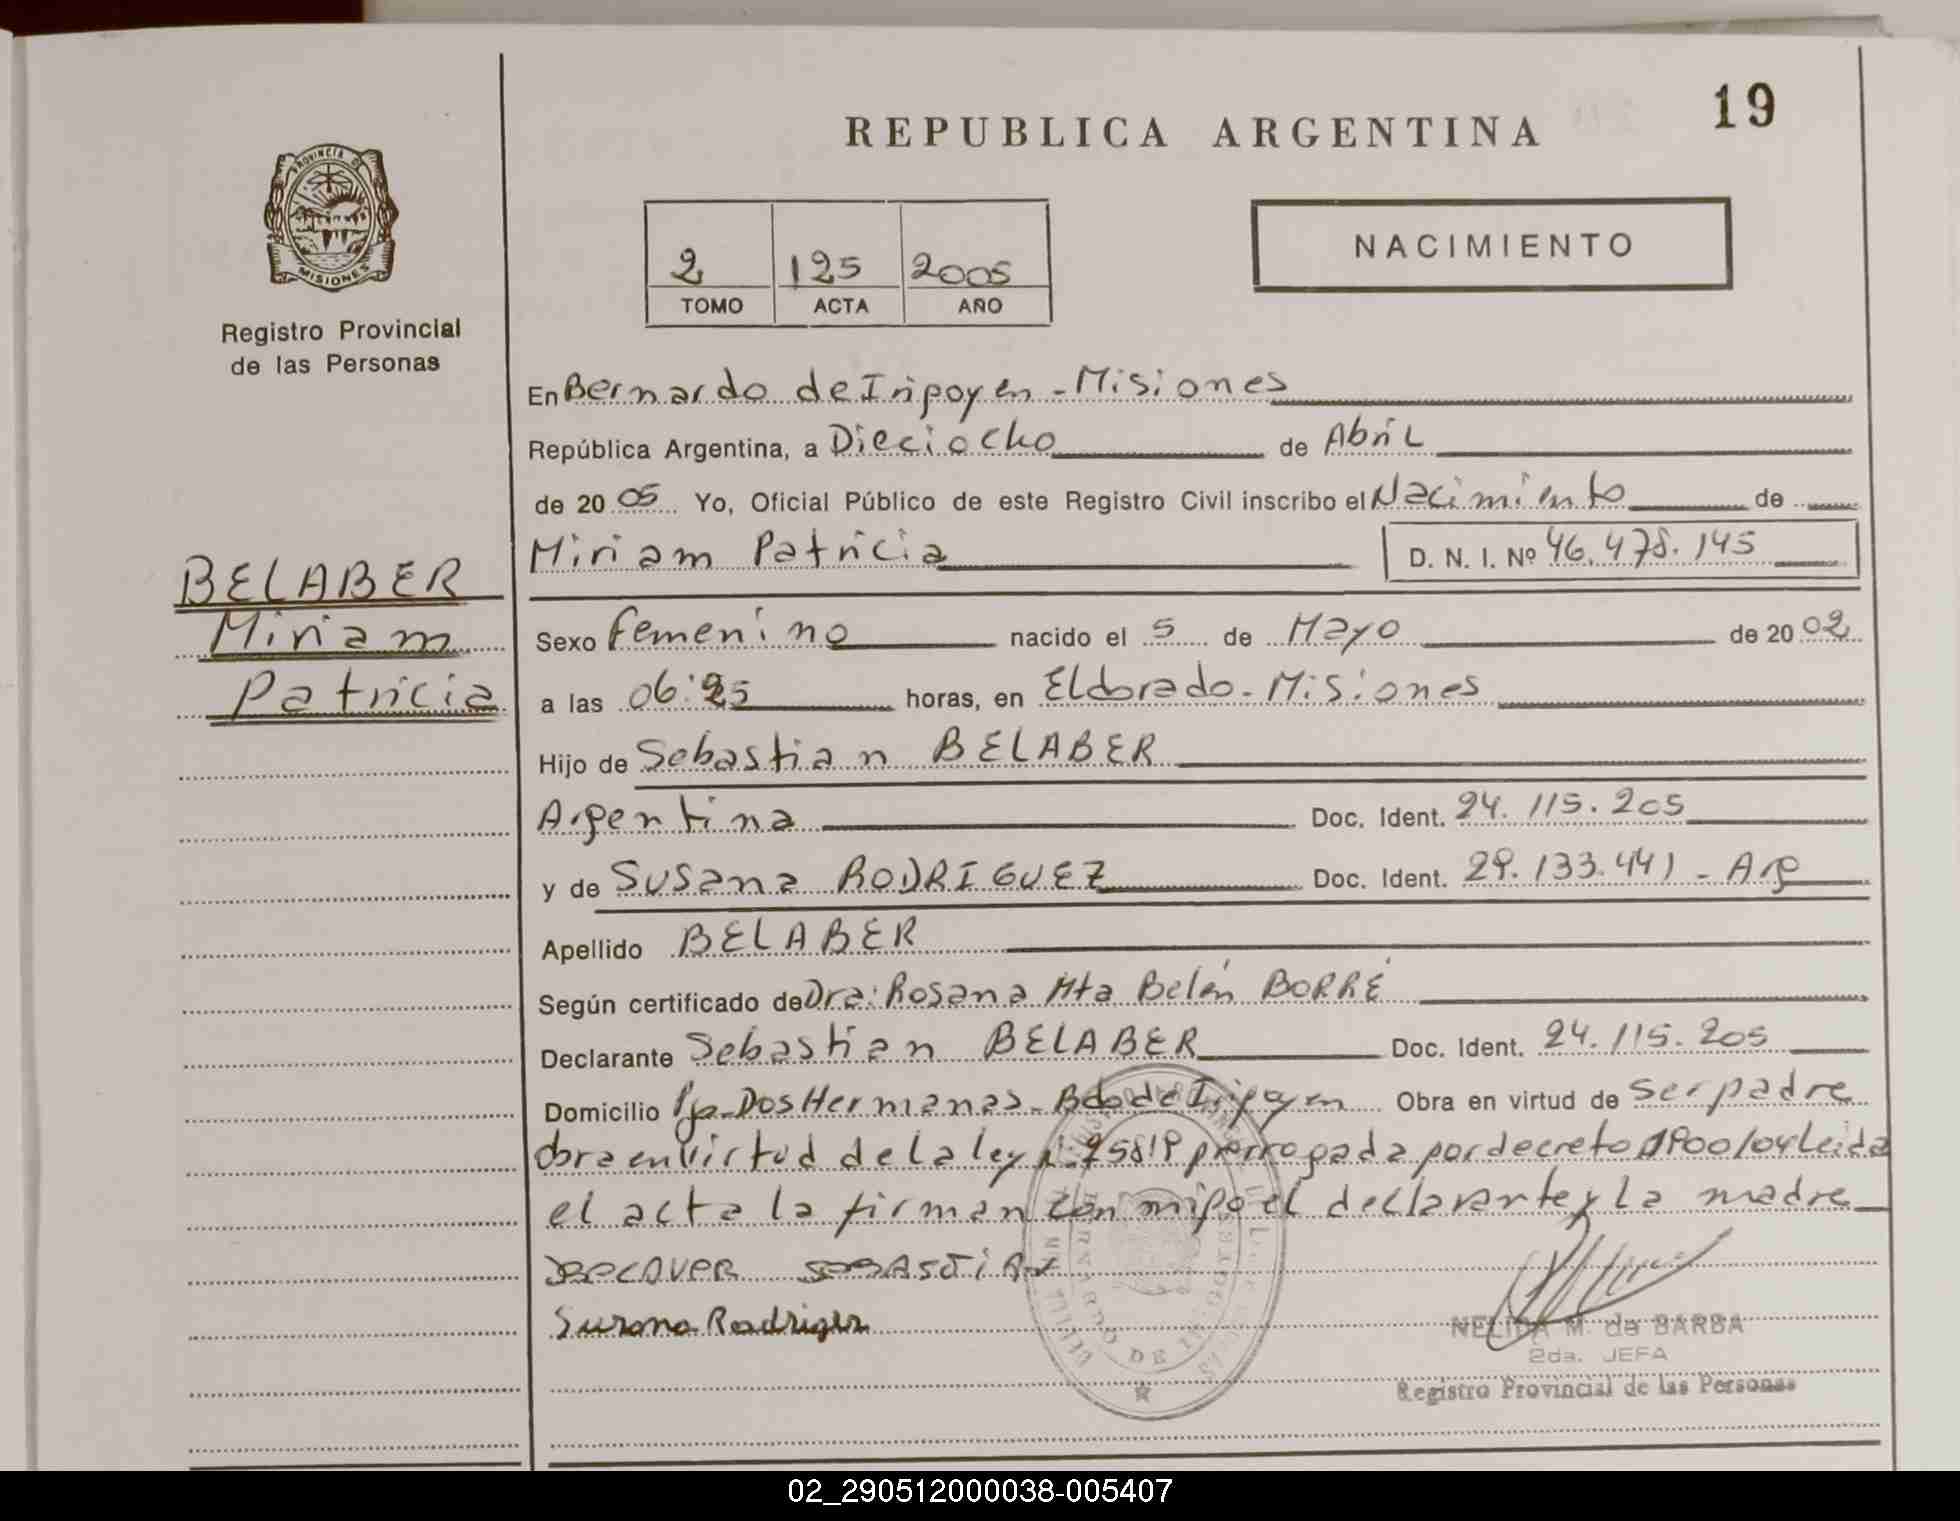 19
REPUBLICA ARGENTINA
PROVINCIA DE
MISIONES
Registro Provincial
de las Personas
NACIMIENTO
2 125 2005
TOMO ACTA AÑO
En Bernardo de Irigoyen - Misiones
República Argentina, a Dieciocho de Abril
de 20 05 Yo, Oficial Público de este Registro Civil inscribo el Nacimiento de
Miriam Patricia D. N. I. Nº 46.478.145
BELABER
Miriam
Patricia
Sexo femenino nacido el 5 de Mayo de 20 02
a las 06: horas, en Eldorado - Misiones
Hijo de Sebastian BELABER
Argentina Doc. Ident. 24.115.205
y de Susana RODRIGUEZ Doc. Ident. 29.133.441 - Arg
Apellido BELABER
Según certificado de Dra: Rosana Mta Belén BORRÉ
Declarante Sebastian BELABER Doc. Ident. 24.115.205
Domicilio Pje Dos Hermanas - Bdo de Irigoyen Obra en virtud de ser padre
obra en virtud de la ley n: 25819 prorrogada por decreto 1900/04 Leida
el acta la firman con migo el declarante y La madre
BELAVER SEBASTIAN
Susana Rodriguez
NELIDA M. de BARBA
2da. JEFA
Registro Provincial de las Personas
02_290512000038-005407